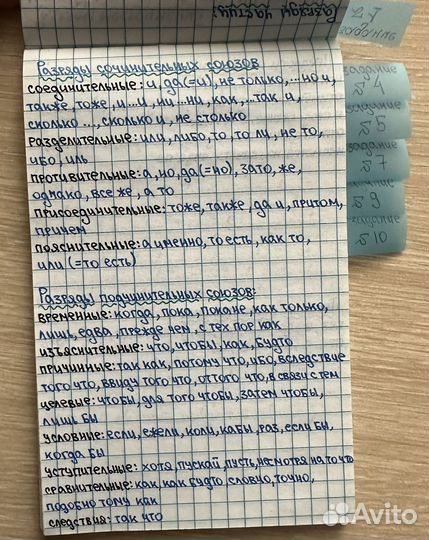 Разряды частиц:
№1
задание
задание
№4
задание
№5
задание
№7
№9
задание
№10
Разряды сочинительных союзов
соединительные: и, да(=и), не только,...но и,
также, тоже, и...и, ни...ни, как,...так и,
сколько ...,сколько и, не столько
разделительные: или, либо, то, то ли, не то,
ибо, иль
противительные: а, но, да(=но), зато, же,
однако, все же, а то
присоединительные: тоже, также, да и, притом,
причем
пояснительные: а именно, то есть, как то,
или (=то есть)
Разряды подчинительных союзов:
временные: когда, пока, пока не, как только,
лишь, едва, прежде чем, с тех пор как
изъяснительные: что, чтобы, как, будто
причинные: так как, потому что, ибо, вследствие
того что, ввиду того что, оттого что, в связи с тем
целевые: чтобы, для того чтобы, затем чтобы,
лишь бы
условные: если, ежели, коли, кабы, раз, если бы,
когда бы
уступительные: хотя, пускай, пусть, несмотря на то что
сравнительные: как, как будто, словно, точно,
подобно тому как
следствия: так что
Avito